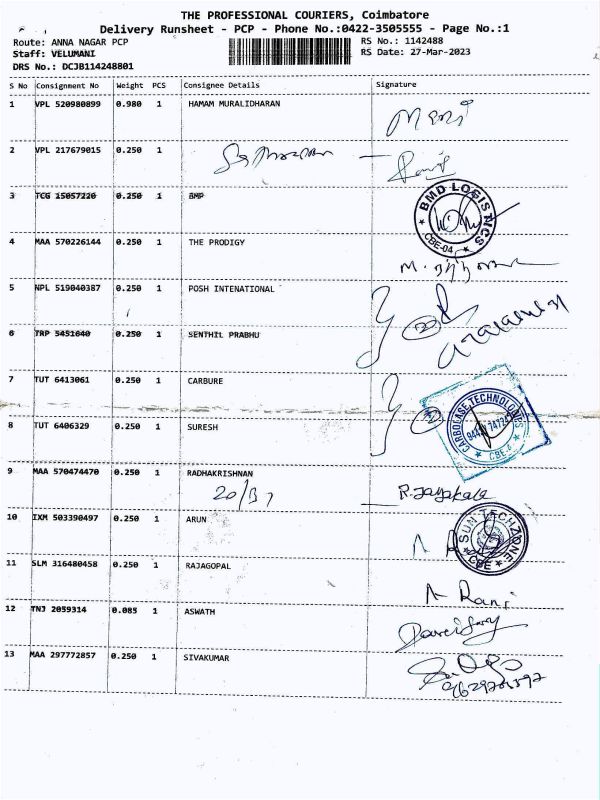 THE PROFESSIONAL COURIERS, Coimbatore
Delivery Runsheet - PCP - Phone No.:0422-3505555 - Page No.:1
Route: ANNA NAGAR PCP RS No.: 1142488
Staff: VELUMANI RS Date: 27-Mar-2023
DRS No.: DCJB114248801
S No Consignment No Weight PCS Consignee Details Signature
1 VPL 520980899 0.980 1 HAMAM MURALIDHARAN Mani
2 VPL 217679015 0.250 1
3 TCG 15057220 0.250 1 BMP BMD LOGISTICS CBE-04
4 MAA 570226144 0.250 1 THE PRODIGY
5 NPL 519040387 0.250 1 POSH INTENATIONAL
6 TRP 5451640 0.250 1 SENTHIL PRABHU
7 TUT 6413061 0.250 1 CARBURE
8 TUT 6406329 0.250 1 SURESH CARBOCASE TECHNOLOGIES CBE-4
9 MAA 570474470 0.250 1 RADHAKRISHNAN
20/B7 R.Jayakala
10 IXM 503390497 0.250 1 ARUN SUN TECHZONE CBE
11 SLM 316480458 0.250 1 RAJAGOPAL Rani
12 TNJ 2059314 0.085 1 ASWATH
13 MAA 297772857 0.250 1 SIVAKUMAR